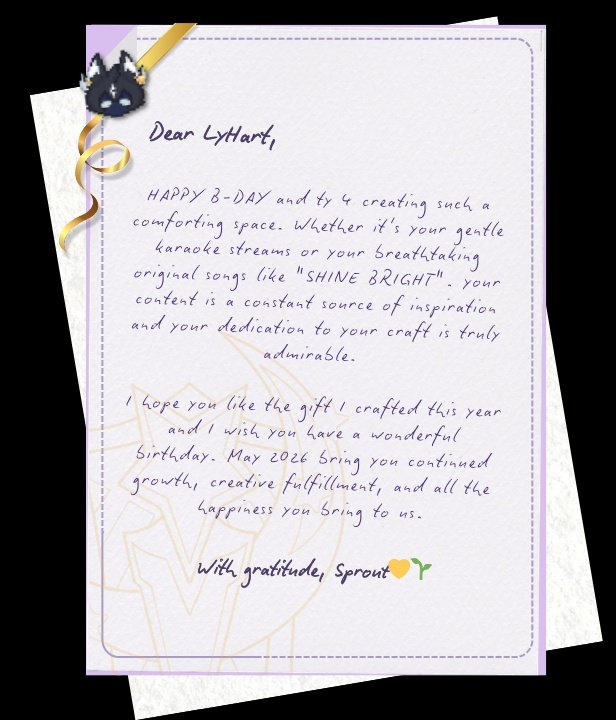 Dear LyHart,
HAPPY B-DAY and ty 4 creating such a
comforting space. Whether it's your gentle
karaoke streams or your breathtaking
original songs like "SHINE BRIGHT". your
content is a constant source of inspiration
and your dedication to your craft is truly
admirable.
I hope you like the gift I crafted this year
and I wish you have a wonderful
birthday. May 2026 bring you continued
growth, creative fulfillment, and all the
happiness you bring to us.
With gratitude, Sprout💛🌱